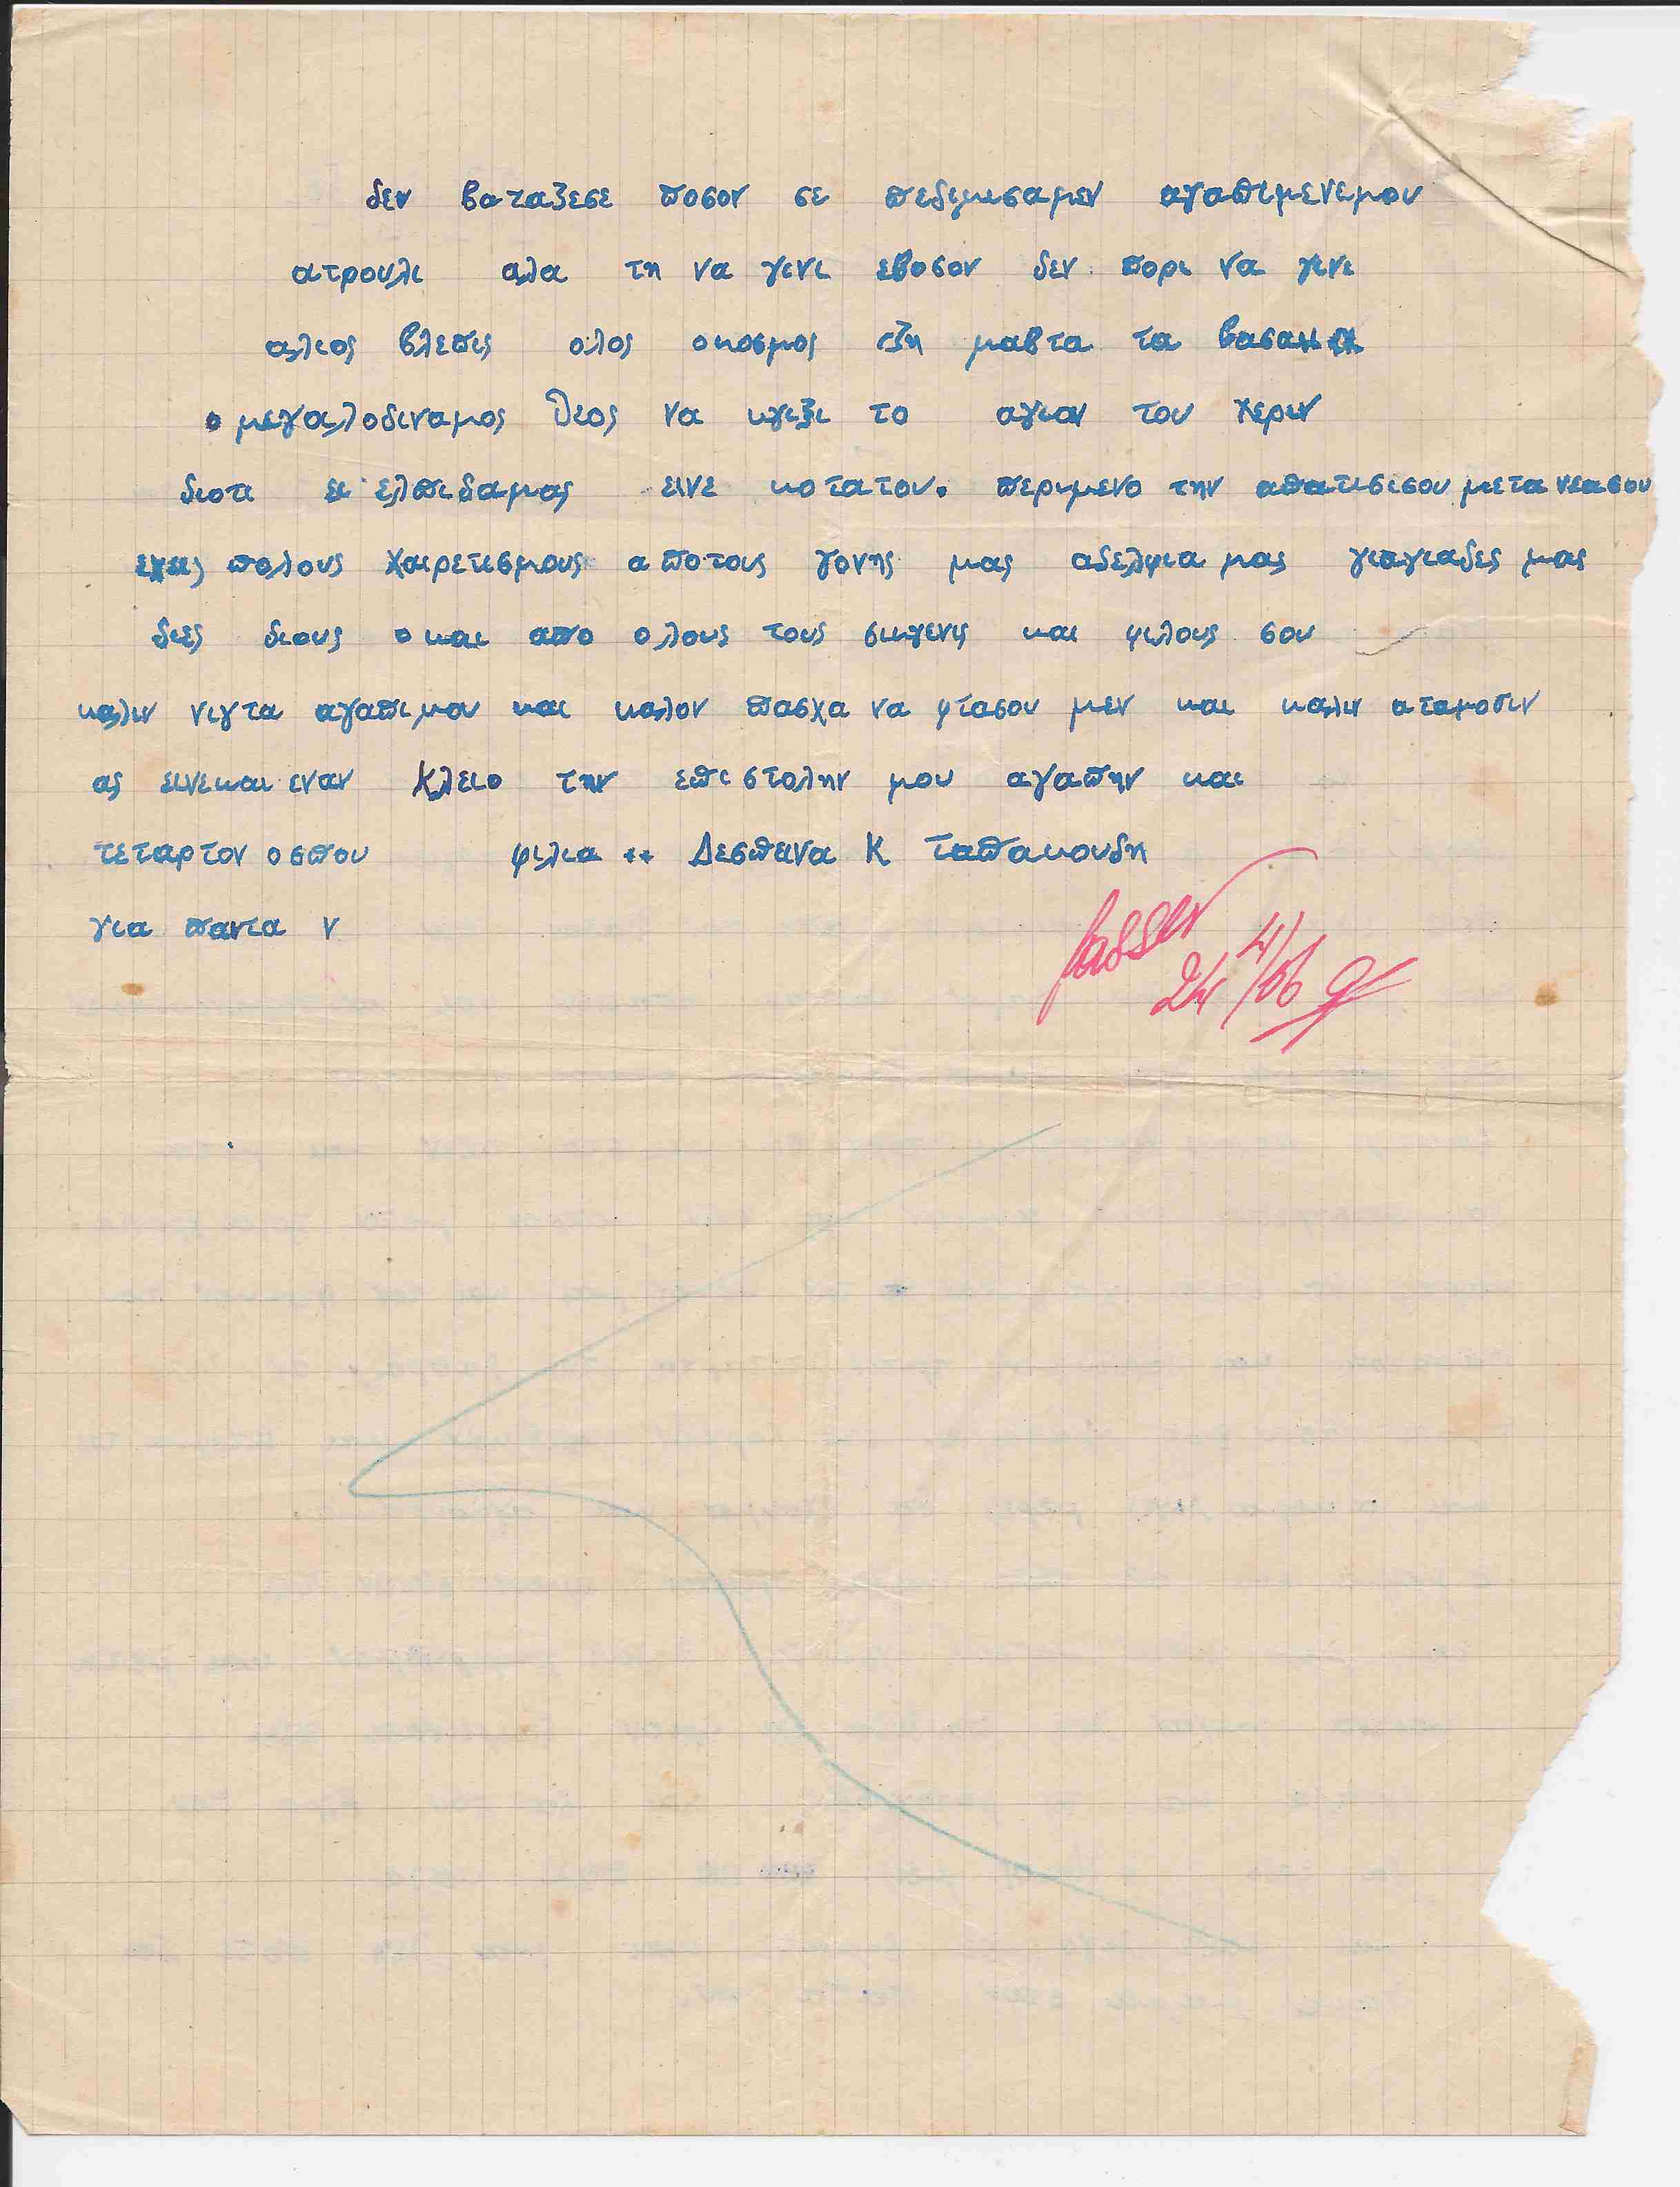 δεν βαταζεσε ποσον σε πεδιμισαμεν αγαπιμενεμου
ατρουλι αλα τη να γινι εβοσον δεν πορι να γινι
αλιος βλεπις ολος οκοσμος ζη μαβτα τα βασανα
ο μεγαλοδιναμος θεος να αγιξι το αγιον του χεριν
διοτι ει ελπιδαμας εινε κο τατον. περιμενο την απατισισου μετα νεασου
εχεις πολους χαιρετισμους αποτους γονης μας αδελφια μας γιαγιαδες μας
διες διους ο και απο ολους τους σιγγενις και φιλους σου
καλιν νιγτα αγαπιμου και καλον πασχα να φτασου μεν και καλιν αταμοσιν
ας εινεκαι εναν κλειο την επιστολην μου αγαπην και
τεταρτον οσπου φιλια ++ Δεσπινα Κ Ταπακουδη
για παντα ν
passed
24/4/56